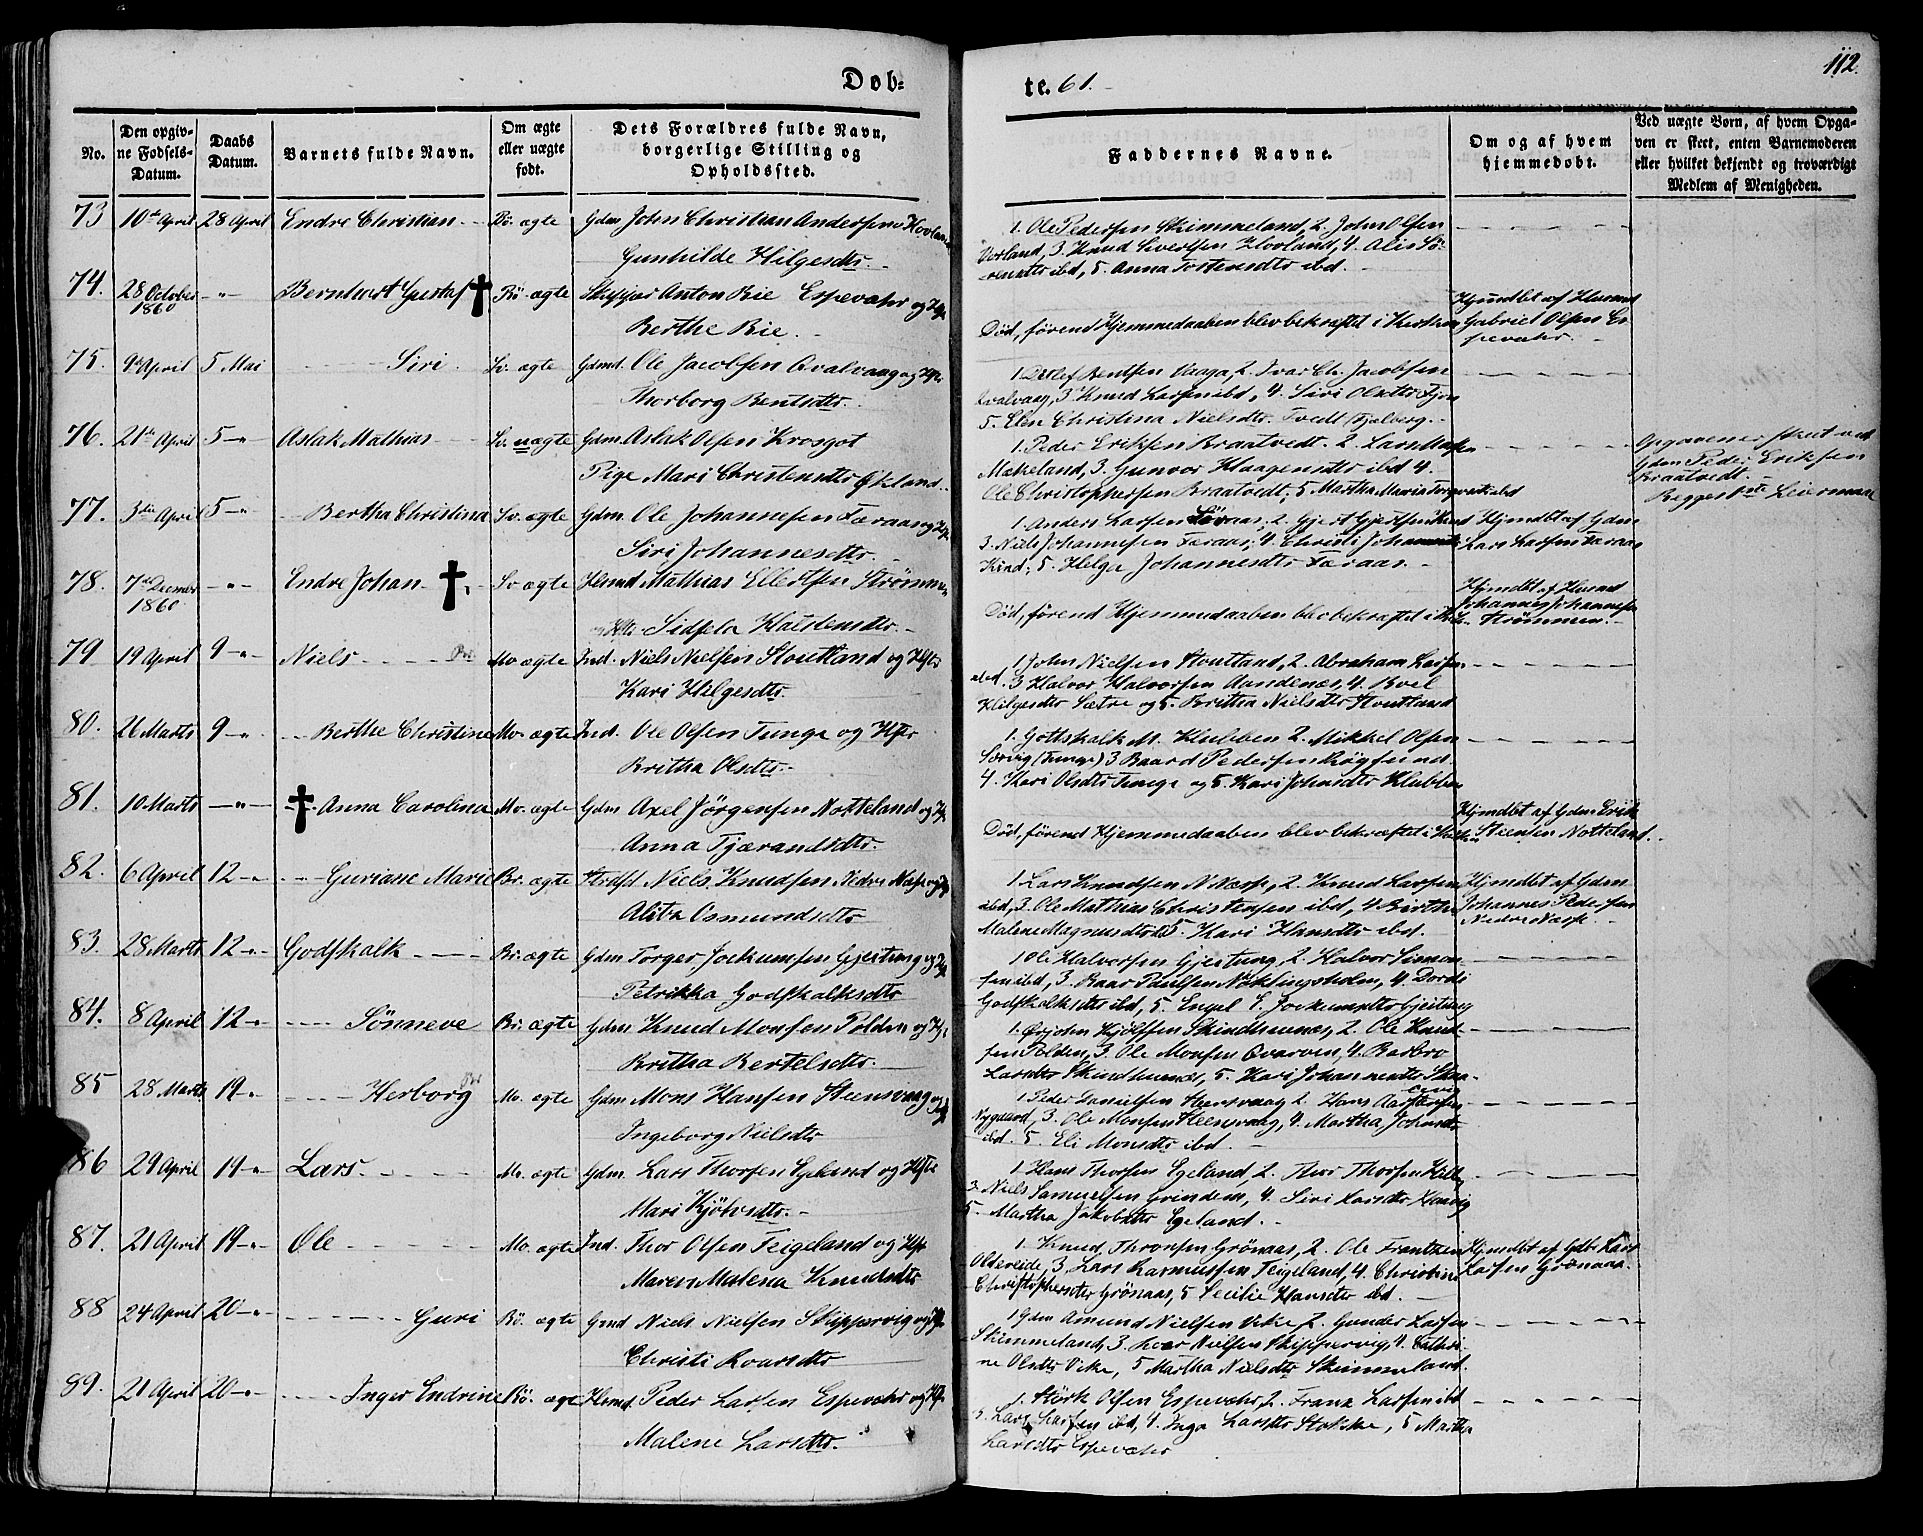 Dob=
te. 61.
112.
No.
Den opgiv-
ne Fødsels-
Datum.
Daabs
Datum.
Barnets fulde Navn.
Om ægte
eller uægte
født.
Dets Forældres fulde Navn,
borgerlige Stilling og
Opholdssted.
Faddernes Navne.
Om og af hvem
hjemmedøbt.
Ved uægte Børn, af hvem Opga-
ven er skeet, enten Barnemoderen
eller hvilket bekjendt og troværdigt
Medlem af Menigheden.
73 10de April 28 April Endre Christian Bö. ægte Gdm John Christian Andersen Hovland
Gunhilde Hilgesdtr.
1. Ole Pedersen Skimmeland, 2. John Olsen
Vorland, 3 Knud Sverlsen Hovland, 4.
ibd, 5. Anna Torstensdtr ibd.
74. 28 October -"- Bernhart Gustaf † Bö ægte Skipper Anton Bie Espevær og H.
1860
Berthe Bie.
Død, førend Hjemmedaaben blev bekræftet i Kirken
Hjmdbt af Husmd
Gabriel Olsen Es-
pevær.
75. 9de April 5 Mai Siri Sv. ægte Gdmd. Ole Jacobsen Qvalvaag og H.
Thorborg Bentsdtr.
1. Detlef Bentsen Vaaga, 2. Ivar Ch. Jacobsen
Qvalvaag, 3 Knud Larsen ibd, 4. Siri Olsdtr
5. Elen Christina Nielsdtr. Tvedt Fjelberg.
76. 21de April 5-"- Aslak Mathias Sv. uægte Gdm. Aslak Olsen Krosgot
Pige Mari Christensdtr Økland.
1. Peder Eriksen Braatvedt. 2. Lars
Mækeland, 3. Gunvor Haagensdtr ibd 4.
Ole Christophersen Braatvedt, 5 Martha Maria ibd
Opgaven er skeet ved
Gdm Peder Eriksen
Braatvedt.
77. 3die April 5-"- Bertha Christina Sv. ægte Gdm. Ole Johannesen Færaas og H.
Siri Johannesdtr.
1. Anders Larsen 2. Gjert Gjertsen
3. Niels Johannesen Færaas, 4. Christi
5. Helga Johannesdtr Færaas.
Hjmdbt af Gdm
Lars Larsen Færaas
78. 7de December -"- Endre Johan † Sv ægte Husmd Mathias Ellertsen Strömmen
1860.
Sidsela Halstensdtr.
Død, førend Hjemmedaaben blev bekræftet i K.
Hjmdbt af Husmd
Johannes Johannesen
Strömmen.
79 19 April 9-"- Niels Mo ægte Ind. Niels Nielsen Stoutland og Hstr
Kari Hilgesdtr.
1. John Nielsen Stoutland, 2. Abraham Larsen
ibd. 3 Halvor Halvorsen Aandenæs, 4.
Hilgesdtr Sætre og 5. Britha Nielsdtr Stoutland
80. 26 Marts 9-"- Berthe Christine Mo. ægte Ind. Ole Olsen Tunge og Hstr
Britha Olsdtr.
1. Gottskalk M. Klubben 2. Mikkel Olsen
Særvig (Tunge) 3 Baard Pedersen
4. Kari Olsdtr Tunge og 5. Kari Johnsdtr Klubben
81. 10 Marts -"- † Anna Carolina Mo. ægte Gdm Axel Jörgensen Notteland og H.
Anna Tjærandsdtr.
Død, førend Hjemmedaaben blev bekræftet i Kirken
Hjmdbt af Gdm Erik
Steensen Notteland.
82. 6 April 12-"- Guriane Marie Br. ægte Niels Knudsen Nedre Næsse og H.
Alita Osmundsdtr
1 Lars Knudsen N. 2. Knud Larsen
ibd, 3. Ole Mathias Christensen ibd, 4 Birthe
Malene Magnusdtr 5. Kari Hansdtr ibd.
Hjmdbt af Gdm
Johannes Pedersen
Nedre
83. 28 Marts 12-"- Godskalk Br. ægte Gdm Torger Jockumsen Gjeitung og H.
Petrikka Godskalksdtr
1 Ole Halvorsen Gjeitung, 2 Halvor Simon-
sen ibd, 3. Baar Paulsen Nöklingsholm, 4. Dordi
Godskalksdtr ibd, 5. Engel Jockumsdtr Gjeitung
84. 8 April 12-"- Sönneve Br. ægte Gdm Knud Monsen Polden og H.
Britha Bertelsdtr.
1. Skindhusnæs, 2. Ole Knud-
sen Polden, 3. Ole Monsen Qvarven, 4. Barbro
Larsdtr Skindhusnæs, 5. Kari Johannesdtr
85 28 Marts 19-"- Herborg Mo. ægte Gdm. Mons Hansen Steensvaag og H.
Ingeborg Nielsdtr
1. Peder Danielsen Steensvaag 2. Hans
Nygaard, 3. Ole Monsen Steensvaag, 4. Martha Johnsdtr
ibd. 5. Eli Monsdtr ibd.
86 29 April 19-"- Lars Mo. ægte Gdm. Lars Thorsen Egeland og Hstr
Mari Kjölvsdtr.
1. Hans Thorsen Egeland, 2. Thor Thorsen
3. Niels Samuelsen Grindem, 4. Siri Larsdtr
5. Martha Jakobsdtr Egeland.
87. 21 April 19-"- Ole Mo. ægte Ind. Thor Olsen Teigeland og Hstr
Maren Malena Knudsdtr
1. Knud Thronsen Grönaas, 2. Ole Frantzen
Oldereide, 3. Lars Rasmussen Teigeland, 4. Christine
Christophersdtr Grönaas, 5 Cecilie Hansdtr ibd.
Hjmdbt af Lars
Larsen Grönaas.
88 24 April 20-"- Guri Bö. ægte Gmd Niels Nielsen Skippervig og H.
Christi Roarsdtr
1 Gdm Amund Nielsen Vike, 2. Gunder Larsen
Skimmeland, 3. Ivar Nielsen Skippervig, 4. Cathri-
ne Olsdtr Vike, 5 Martha Nielsdtr Skimmeland.
89. 21 April 20-"- Inger Endrine Bö. ægte Husmd. Peder Larsen Espevær og H.
Malene Larsdtr.
1. Störk Olsen Espevær, 2. Franz Larsen ibd
3. Lars Larsen ibd, 4. Inga Larsdtr Stokke, 5 Martha
Larsdtr Espevær